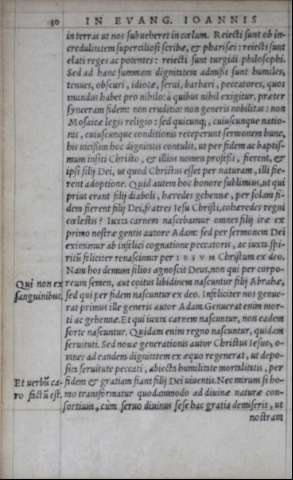 30 IN EVANG. IOANNIS
in terras ut nos subueheret in cœlum. Reiecti sunt ob in-
credulitatem superciliosi scribæ, & pharisei: reiecti sunt
elati reges ac potentes: reiecti sunt turgidi philosophi.
Sed ad hanc summam dignitatem admissi sunt humiles,
tenues, obscuri, idiotæ, serui, barbari, peccatores, quos
mundus habet pro nihilo: à quibus nihil exigitur, præter
synceram fidem: non eruditio: non generis nobilitas: non
Mosaicæ legis religio: sed quicunq;, cuiuscunque natio-
nis, cuiuscunque conditionis receperunt sermonem hunc,
his uicissim hoc dignitatis contulit, ut per fidem ac baptis-
mum insiti Christo, & illius nomen professi, fierent, &
ipsi filij Dei, ut quod Christus esset per naturam, illi fie-
rent adoptione. Quid autem hoc honore sublimius, ut qui
prius erant filij diaboli, hæredes gehennæ, per solam fi-
dem fierent filij Dei, fratres Iesu Christi, cohæredes regni
cœlestis? Iuxta carnem nascebamur omnes filij iræ ex
primo nostræ gentis autore Adam: sed per sermonem Dei
eximimur ab infelici cognatione peccatoris, ac iuxta spi-
ritū feliciter renascimur per IESVM Christum ex deo.
Nam hos demum filios agnoscit Deus, non qui per corpo-
Qui non ex reum semen, aut coitus libidinem nascuntur filij Abrahæ,
sanguinibus, sed qui per fidem nascuntur ex deo. Infeliciter nos genue-
rat primus ille generis autor Adam. Genuerat enim mor-
ti ac gehennæ. Et qui iuxta carnem nascuntur, non eadem
sorte nascuntur. Quidam enim regno nascuntur, quidam
seruituti. Sed nouæ generationis autor Christus Iesus, o-
mnes ad eandem dignitatem ex æquo regenerat, ut depo-
sita seruitute peccati, abiecta humilitate mortalitatis, per
Et uerbū ca- fidem & gratiam fiant filij Dei uiuentis. Nec mirum si ho-
ro factū est. mo transformatur quodammodo ad diuinæ naturæ con-
sortium, cùm sermo diuinus sese hac gratia demiserit, ut
nostram